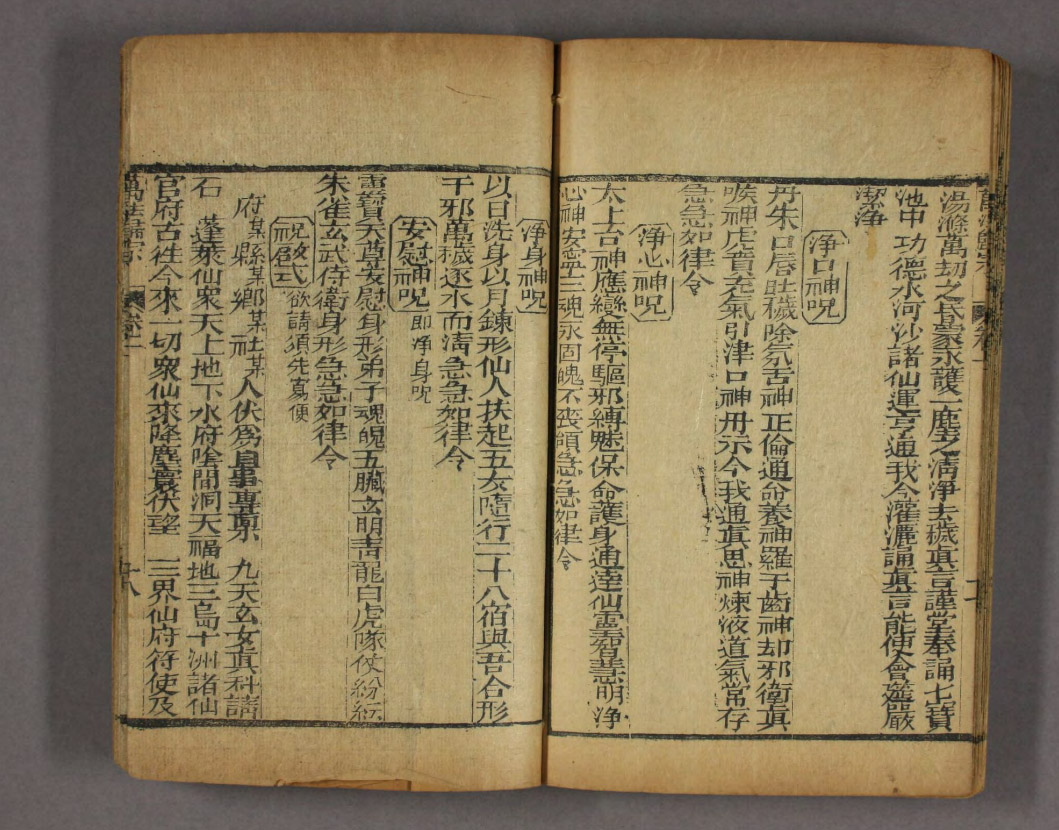 湯滌萬劫之民蒙永護一塵之清净去穢真言謹堂奉誦七寶
池中功德水河沙諸仙運亨通我今灌灑誦真言能使會筵嚴
潔淨
浄口神呪
丹朱口唇吐穢除氛舌神正倫通命養神羅千齒神却邪衛真
喉神虎賁充氣引津口神丹示令我通眞思神煉液道氣常存
急急如律令
浄心神呪
太上台神應變無停驅邪縛魅保命護身通達仙靈智慧明浄
心神安寧三魂永固魄不喪頃急急如律令
浄身神呪
以日洗身以月錬形仙人扶起五女隨行二十八宿與吾合形
千邪萬穢逐水而淸急急如律令
安慰神呪 即浄身呪
靈寶天尊安慰身形弟子魂魄五臟玄明青龍白虎隊仗紛紜
朱雀玄武侍衛身形急急如律令
式 欲請須先寫便
府某縣某鄉某社某人伏爲 專 九天玄女真科請
石 蓬萊仙衆天上地下水府陰間洞天福地三島十洲諸仙
官府古徃今來一切衆仙來降塵寰伏望 三界仙府符使及
萬法歸宗 卷一 十八